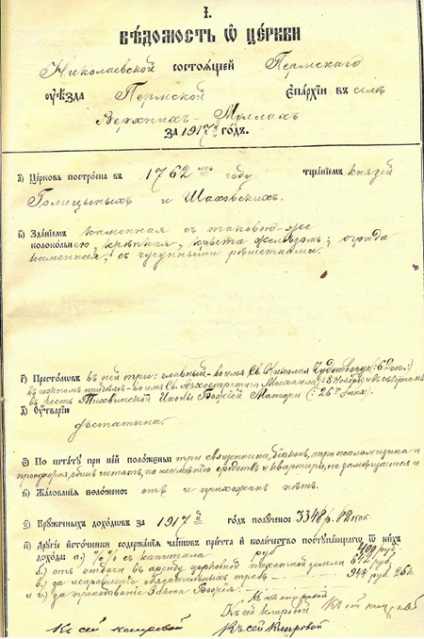 I.
Вѣдомость ѿ церкви
Николаевской состоящей Пермскаго
оуѣзда Пермской епархіи въ селѣ
Верхнихъ-Муллахъ
за 1917й годъ.
а) Церковь построена въ 1762мъ году тщаніемъ князей
Голицыныхъ и Шаховскихъ.
в) Зданіемъ каменная съ таковою-же
колокольнею, крѣпка, крыта желѣзомъ; ограда
каменная, съ чугунными рѣшетками.
г) Престоловъ въ ней три: главный-во имя Св. Николая Чудотворца (:6 Дек.:)
въ южномъ придѣлѣ-во имя Св. Архистратига Михаила (:8 Ноября:)
въ честь Тихвинской Иконы Божіей Матери (:26 Іюня:)
д) Оутварію
достаточна.
По штату при ней положены: три священника, діаконъ, три псаломщика и
просфорня,
Жалованья положено: отъ прихожанъ нѣтъ.
Кружечныхъ доходовъ за 1917й годъ получено: 3348 р. 12 коп.
Другіе источники содержанія членовъ причта и количество поступающаго ѿ нихъ
дохода: а) %% съ капитала 400 руб.
б) отъ отдачи въ аренду церковной пахатной земли 672 руб.
в) за исправленіе обязательныхъ требъ 944 руб. 25 к.
и г) за преподаваніе Закона Божія.
Къ сей клировой
Къ сей клировой